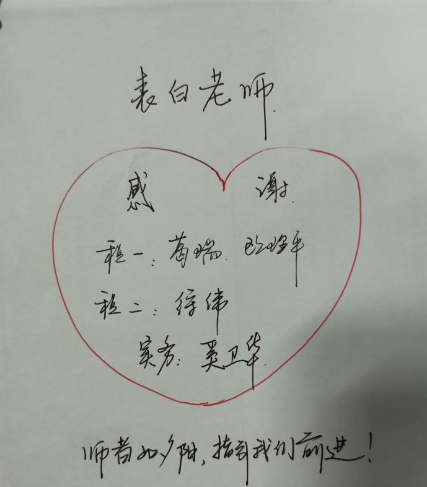 表白老师
感 谢
税一：葛瑞、欧阳华
税二：徐伟
实务：奚卫华
师者如夕阳，指引我们前进！